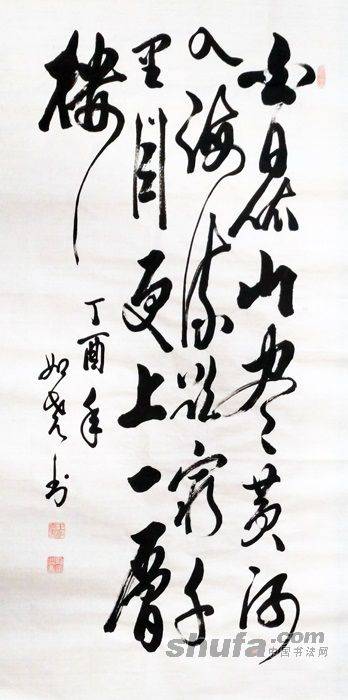 白日依山尽黄河
入海流欲窮千
里目更上一層
樓
丁酉年
如尧书
shufa.com
中国书法网